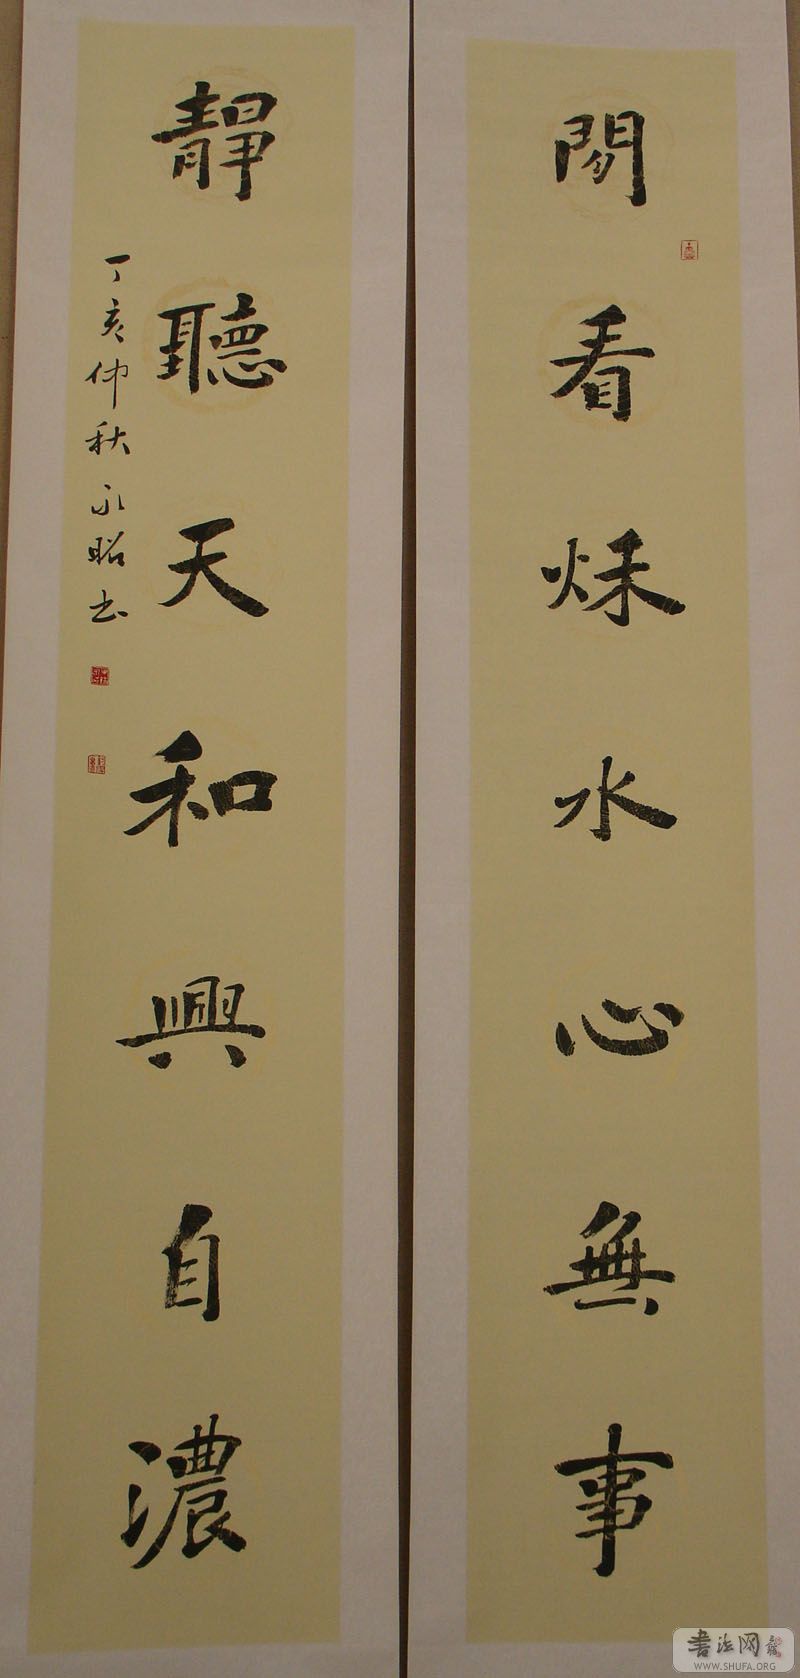 閒看秌水心無事
靜聽天和興自濃
丁亥仲秋永昭书
書法网
WWW.SHUFA.ORG